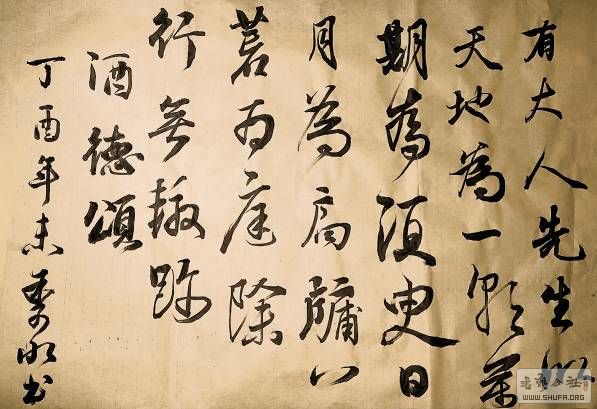 有大人先生以
天地為一朝萬
期為須臾日
月為扃牖八
荒为庭除
行無轍跡
酒德頌
丁酉年末書
公社
WWW.SHUFA.ORG